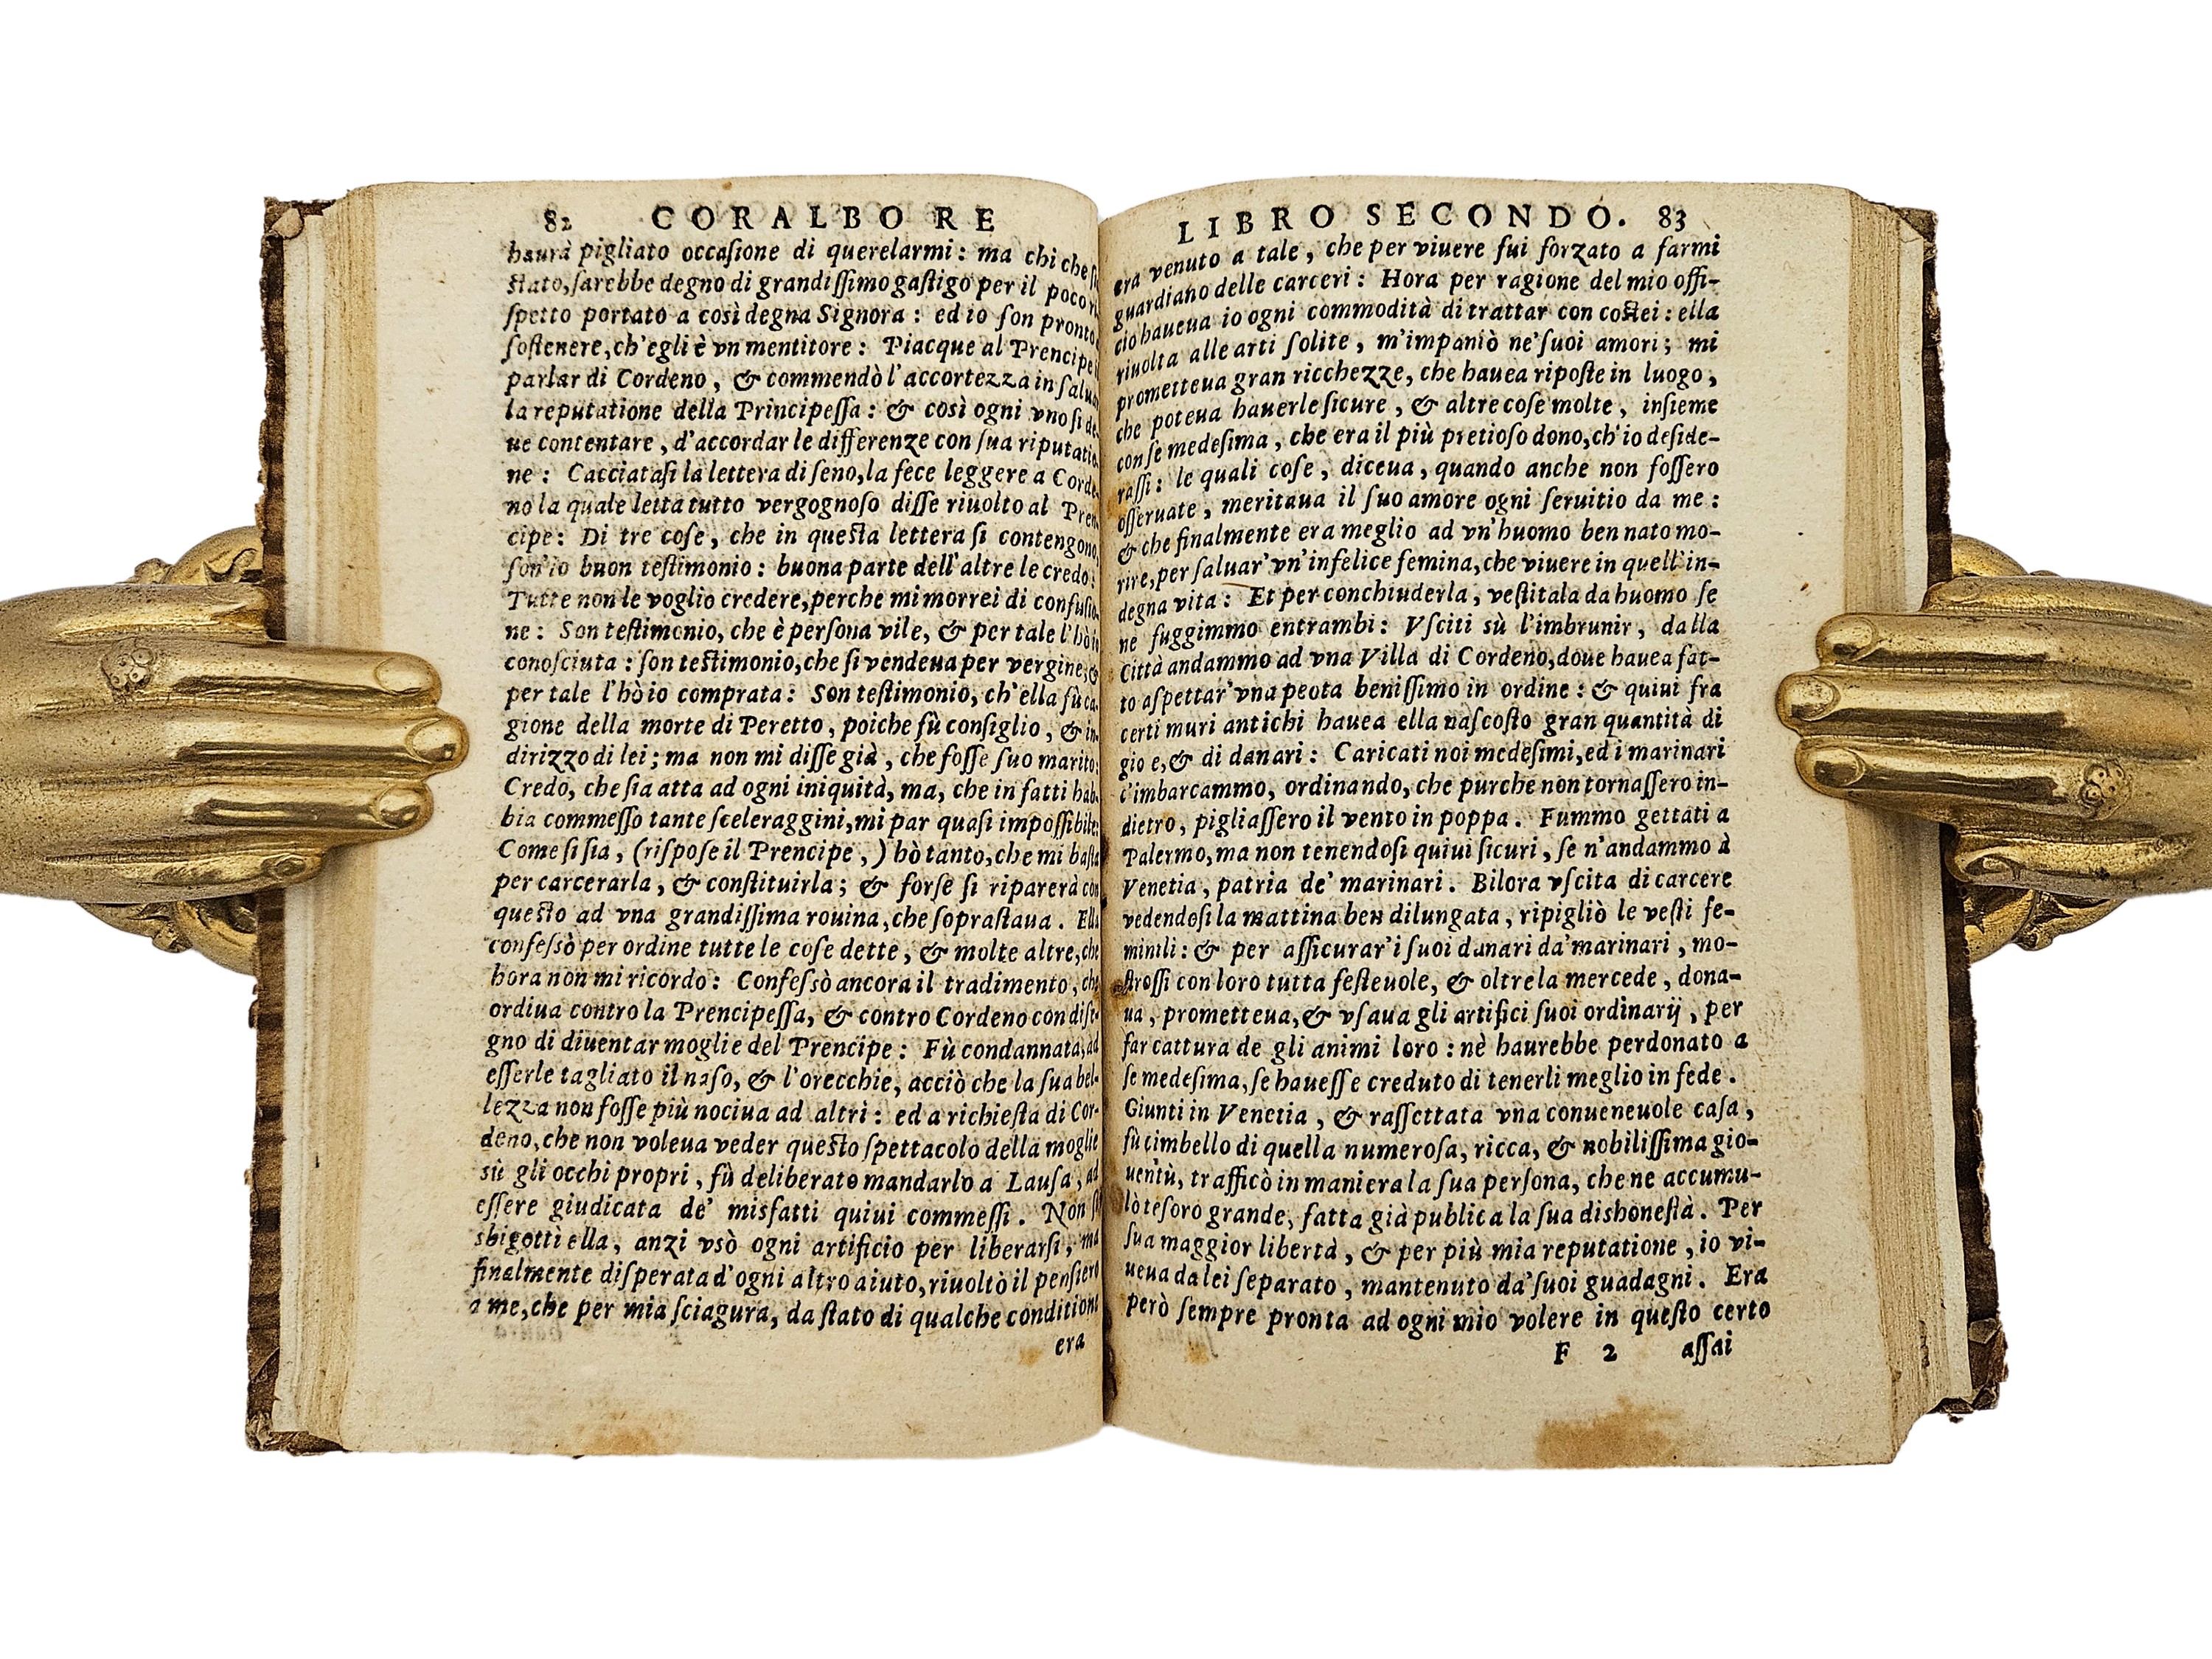 82 CORALBO RE
haurà pigliato occaſione di querelarmi: ma chi che
ſtato, ſarebbe degno di grandiſſimo gaſtigo per il poco
ſpetto portato a così degna Signora: ed io ſon pronto
ſoſtenere, ch'egli è vn mentitore: Piacque al Prencipe
parlar di Cordeno, & commendò l'accortezza in
la reputatione della Principeſſa: & così ogni vno ſi de-
ue contentare, d'accordar le differenze con ſua riputatio-
ne: Cacciataſi la lettera di ſeno, la fece leggere a Corde-
no la quale letta tutto vergognoſo diſſe riuolto al Pren-
cipe: Di tre coſe, che in queſta lettera ſi contengono,
ſon'io buon teſtimonio: buona parte dell'altre le credo:
Tutte non le voglio credere, perche mi morrei di confuſio-
ne: Son teſtimonio, che è perſona vile, & per tale l'hò io
conoſciuta: ſon teſtimonio, che ſi vendeua per vergine, &
per tale l'hò io comprata: Son teſtimonio, ch'ella fù ca-
gione della morte di Peretto, poiche fù conſiglio, & in-
dirizzo di lei; ma non mi diſſe già, che foſſe ſuo marito:
Credo, che ſia atta ad ogni iniquità, ma, che in fatti hab-
bia commeſſo tante ſceleraggini, mi par quaſi impoſſibile:
Come ſi ſia, (riſpoſe il Prencipe,) hò tanto, che mi baſta
per carcerarla, & conſtituirla; & forſe ſi riparerà con
queſto ad vna grandiſſima rouina, che ſopraſtaua. Ella
confeſsò per ordine tutte le coſe dette, & molte altre, che
hora non mi ricordo: Confeſsò ancora il tradimento, che
ordiua contro la Prencipeſſa, & contro Cordeno con diſe-
gno di diuentar moglie del Prencipe: Fù condannata, ad
eſſerle tagliato il naſo, & l'orecchie, acciò che la ſua bel-
lezza non foſſe più nociua ad altri: ed a richieſta di Cor-
deno, che non voleua veder queſto ſpettacolo della moglie
sù gli occhi propri, fù deliberato mandarlo a Lauſa, ad
eſſere giudicata de' misfatti quiui commeſſi. Non ſi
sbigottì ella, anzi vsò ogni artificio per liberarſi, ma
finalmente diſperata d'ogni altro aiuto, riuoltò il penſiero
a me, che per mia ſciagura, da ſtato di qualche conditione
era
LIBRO SECONDO. 83
era venuto a tale, che per viuere fui forzato a farmi
guardiano delle carceri: Hora per ragione del mio offi-
cio haueua io ogni commodità di trattar con coſtei: ella
riuolta alle arti ſolite, m'impaniò ne' ſuoi amori; mi
prometteua gran ricchezze, che hauea ripoſte in luogo,
che poteua hauerle ſicure, & altre coſe molte, inſieme
con ſe medeſima, che era il più pretioſo dono, ch'io deſide-
raſſi: le quali coſe, diceua, quando anche non foſſero
oſſeruate, meritaua il ſuo amore ogni ſeruitio da me:
& che finalmente era meglio ad vn'huomo ben nato mo-
rire, per ſaluar' vn'infelice femina, che viuere in quell'in-
degna vita: Et per conchiuderla, veſtitala da huomo ſe
ne fuggimmo entrambi: Vſciti sù l'imbrunir, dalla
Città andammo ad vna Villa di Cordeno, doue hauea fat-
to aſpettar' vna peota beniſſimo in ordine: & quiui fra
certi muri antichi hauea ella naſcoſto gran quantità di
gio e, & di danari: Caricati noi medeſimi, ed i marinari
c'imbarcammo, ordinando, che purche non tornaſſero in-
dietro, pigliaſſero il vento in poppa. Fummo gettati a
Palermo, ma non tenendoſi quiui ſicuri, ſe n'andammo à
Venetia, patria de' marinari. Bilora vſcita di carcere
vedendoſi la mattina ben dilungata, ripigliò le veſti fe-
minili: & per aſſicurar' i ſuoi danari da' marinari, mo-
ſtroſſi con loro tutta feſteuole, & oltre la mercede, dona-
ua, prometteua, & vſaua gli artifici ſuoi ordinarij, per
far cattura de gli animi loro: nè haurebbe perdonato a
ſe medeſima, ſe haueſſe creduto di tenerli meglio in fede.
Giunti in Venetia, & raſſettata vna conueneuole caſa,
fù cimbello di quella numeroſa, ricca, & nobiliſſima gio-
uentù, trafficò in maniera la ſua perſona, che ne accumu-
lò teſoro grande, fatta già publica la ſua dishoneſtà. Per
ſua maggior libertà, & per più mia reputatione, io vi-
ueua da lei ſeparato, mantenuto da' ſuoi guadagni. Era
però ſempre pronta ad ogni mio volere in queſto certo
F 2 aſſai